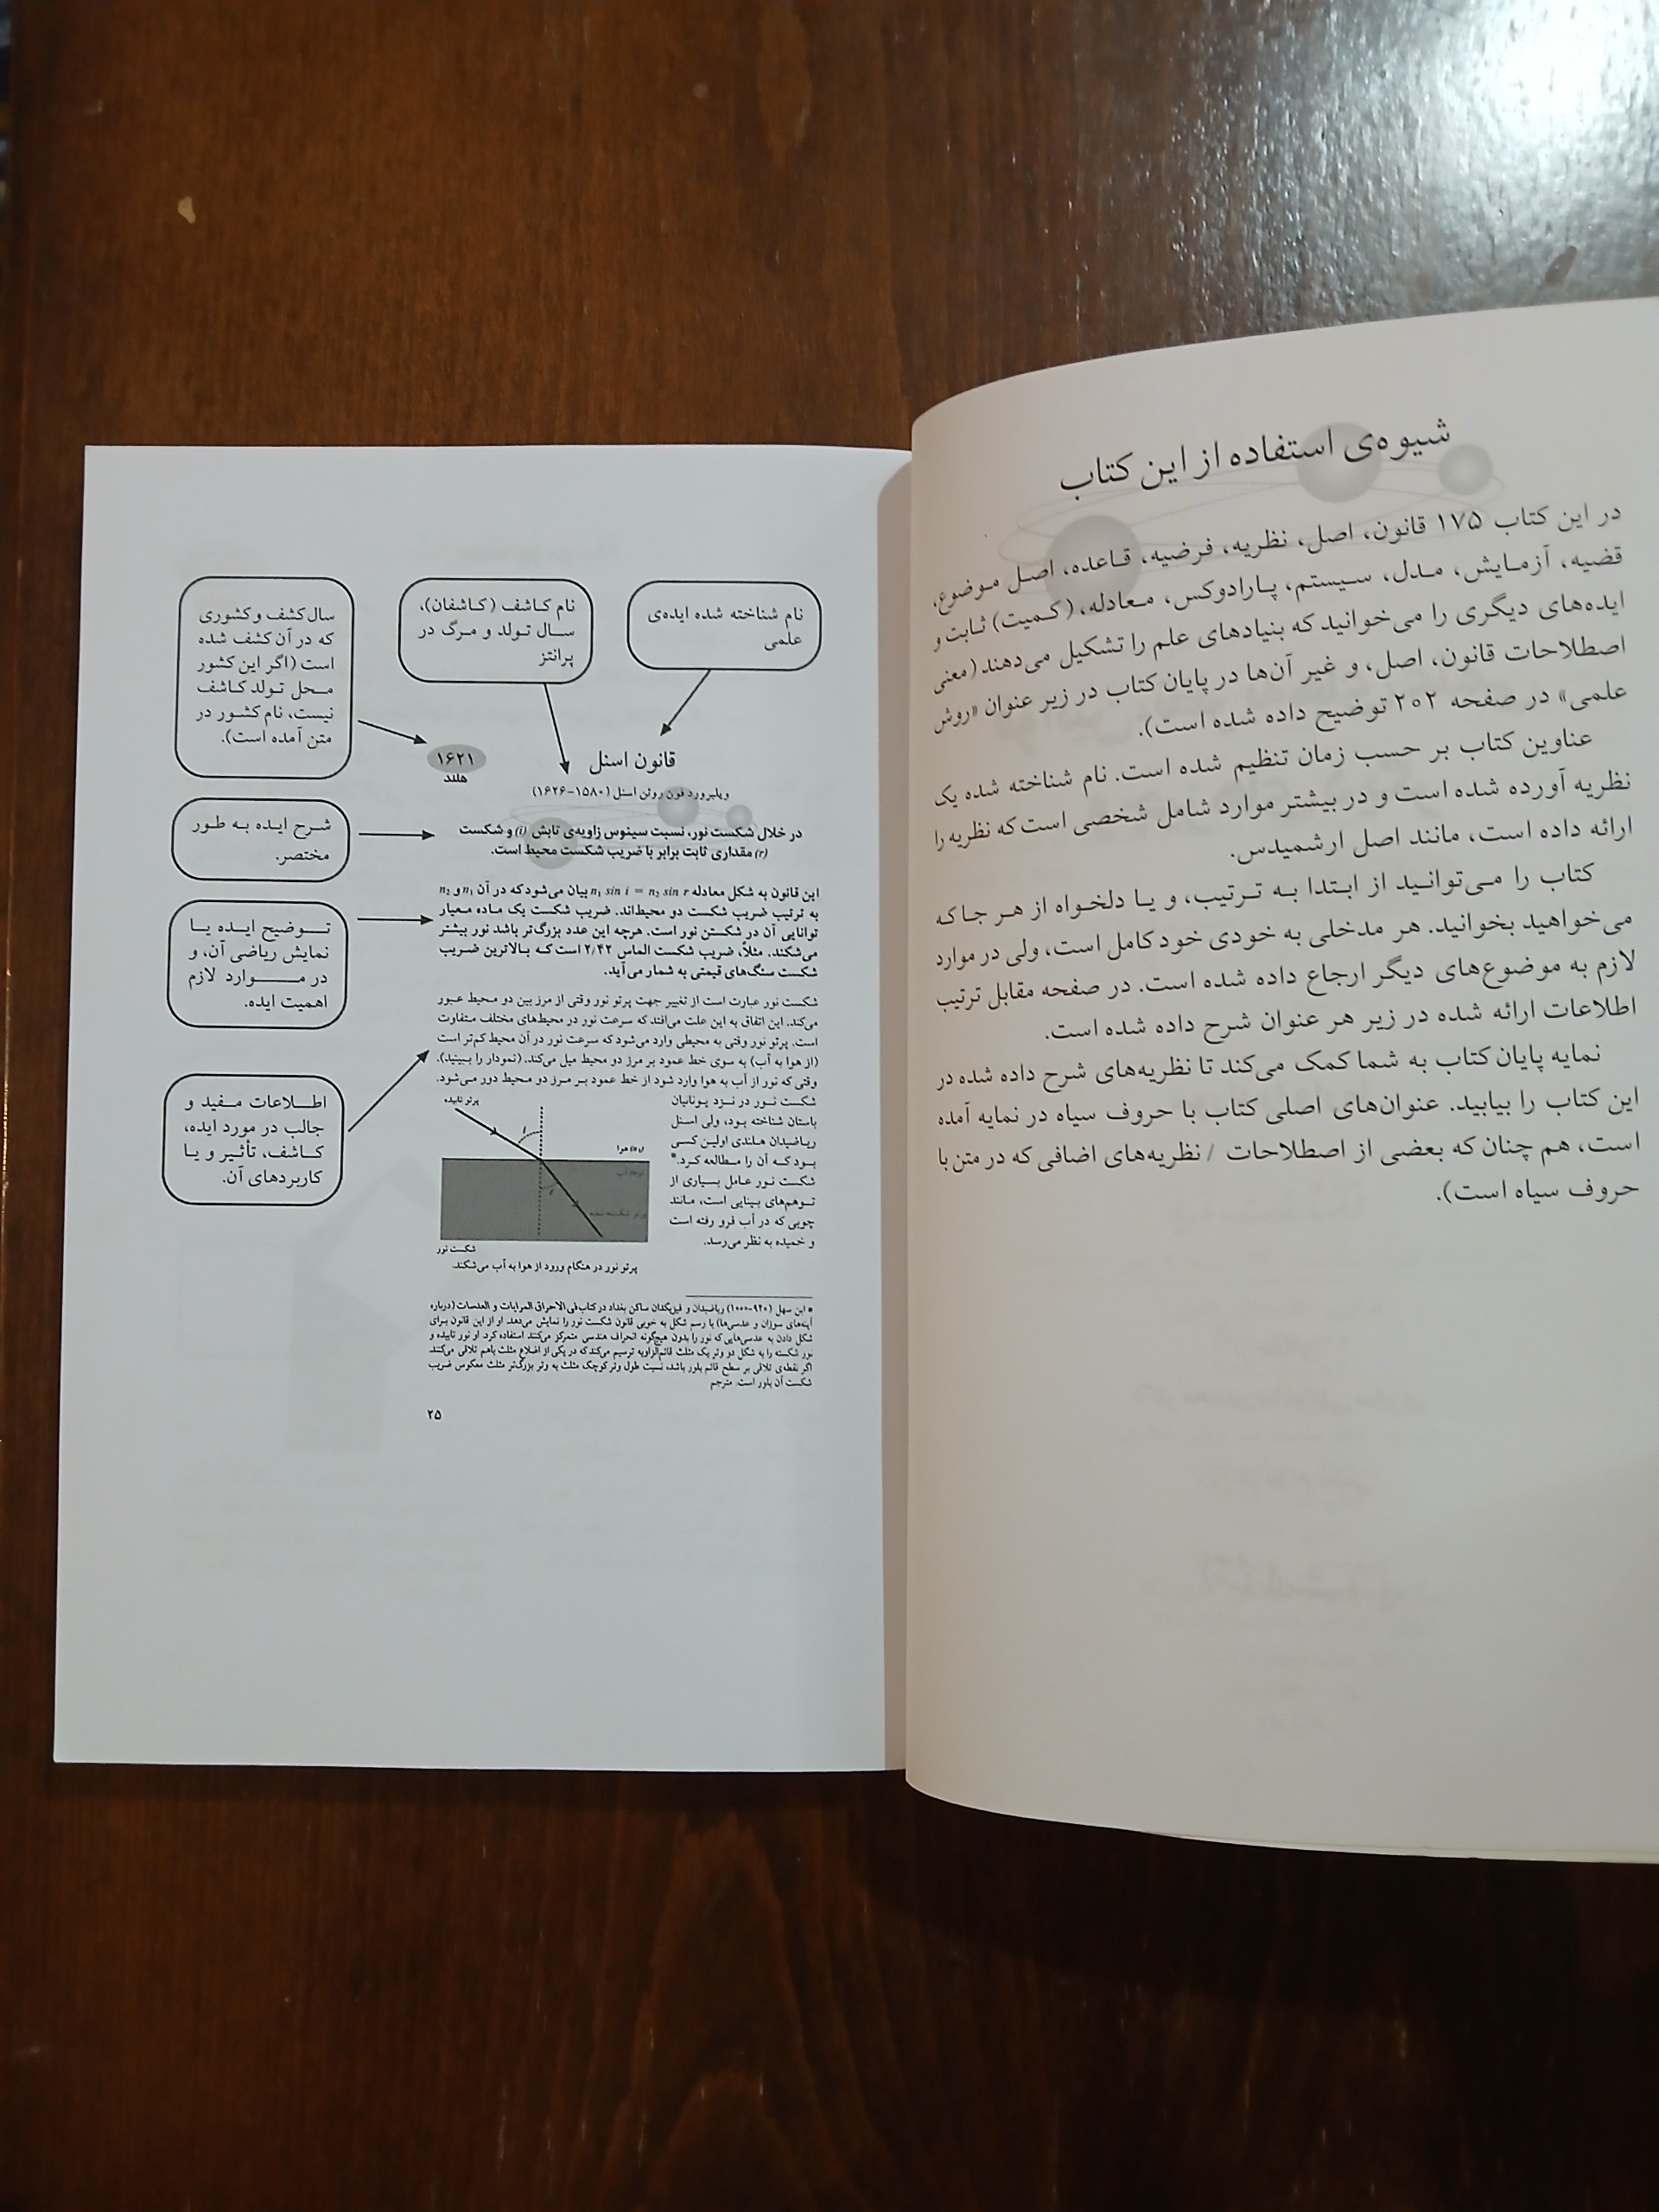 شیوه‌ی استفاده از این کتاب
در این کتاب ۱۷۵ قانون، اصل، نظریه، فرضیه، قاعده، اصل موضوع،
قضیه، آزمایش، مدل، سیستم، پارادوکس، معادله، (کمیت) ثابت و
ایده‌های دیگری را می‌خوانید که بنیادهای علم را تشکیل می‌دهند (معنی
اصطلاحات قانون، اصل، و غیر آن‌ها در پایان کتاب در زیر عنوان «روش
علمی» در صفحه ۲۰۲ توضیح داده شده است).
عناوین کتاب بر حسب زمان تنظیم شده است. نام شناخته شده یک
نظریه آورده شده است و در بیشتر موارد شامل شخصی است که نظریه را
ارائه داده است، مانند اصل ارشمیدس.
کتاب را می‌توانید از ابتدا به ترتیب، و یا دلخواه از هر جا که
می‌خواهید بخوانید. هر مدخلی به خودی خود کامل است، ولی در موارد
لازم به موضوع‌های دیگر ارجاع داده شده است. در صفحه مقابل ترتیب
اطلاعات ارائه شده در زیر هر عنوان شرح داده شده است.
نمایه پایان کتاب به شما کمک می‌کند تا نظریه‌های شرح داده شده در
این کتاب را بیابید. عنوان‌های اصلی کتاب با حروف سیاه در نمایه آمده
است، هم چنان که بعضی از اصطلاحات / نظریه‌های اضافی که در متن با
حروف سیاه است).
نام شناخته شده ایده‌ی
علمی
نام کاشف (کاشفان)،
سال تولد و مرگ در
پرانتز
سال کشف و کشوری
که در آن کشف شده
است (اگر این کشور
محل تولد کاشف
نیست، نام کشور در
متن آمده است).
قانون اسنل
۱۶۲۱
هلند
ویلبرورد فون روئن اسنل (۱۵۸۰–۱۶۲۶)
شرح ایده به طور
مختصر.
در خلال شکست نور، نسبت سینوس زاویه‌ی تابش (i) و شکست
(r) مقداری ثابت برابر با ضریب شکست محیط است.
توضیح ایده یا
نمایش ریاضی آن، و
در موارد لازم
اهمیت ایده.
این قانون به شکل معادله n₁ sin i = n₂ sin r بیان می‌شود که در آن n₁ و n₂
به ترتیب ضریب شکست دو محیط‌اند. ضریب شکست یک ماده معیار
توانایی آن در شکستن نور است. هرچه این عدد بزرگ‌تر باشد نور بیشتر
می‌شکند. مثلاً، ضریب شکست الماس ۲/۴۲ است که بالاترین ضریب
شکست سنگ‌های قیمتی به شمار می‌آید.
اطلاعات مفید و
جالب در مورد ایده،
کاشف، تأثیر و یا
کاربردهای آن.
شکست نور عبارت است از تغییر جهت پرتو نور وقتی از مرز بین دو محیط عبور
می‌کند. این اتفاق به این علت می‌افتد که سرعت نور در محیط‌های مختلف متفاوت
است. پرتو نور وقتی به محیطی وارد می‌شود که سرعت نور در آن محیط کم‌تر است
(از هوا به آب) به سوی خط عمود بر مرز دو محیط میل می‌کند. (نمودار را ببینید).
وقتی که نور از آب به هوا وارد شود از خط عمود بر مرز دو محیط دور می‌شود.
شکست نور در نزد یونانیان
باستان شناخته بود، ولی اسنل
ریاضیدان هلندی اولین کسی
بود که آن را مطالعه کرد.*
شکست نور عامل بسیاری از
توهم‌های بینایی است، مانند
چوبی که در آب فرو رفته است
و خمیده به نظر می‌رسد.
پرتو تابیده
i
هوا
r
پرتو شکسته شده
شکست نور
پرتو نور در هنگام ورود از هوا به آب می‌شکند.
* ابن سهل (۹۴۰–۱۰۰۰) ریاضیدان و فیزیکدان ساکن بغداد در کتاب فی الاحراق المرایات و العدسات (درباره
آینه‌های سوزان و عدسی‌ها) با رسم شکل به خوبی قانون شکست نور را نمایش می‌دهد. او از این قانون برای
شکل دادن به عدسی‌هایی که نور را بدون هیچگونه انحراف هندسی متمرکز می‌کنند استفاده کرد. او نور تابیده و
نور شکسته را به شکل دو وتر یک مثلث قائم‌الزاویه ترسیم می‌کند که در یکی از اضلاع مثلث باهم تلاقی می‌کنند.
اگر نقطه‌ی تلاقی بر سطح قائم بلور باشد، نسبت طول وتر کوچک مثلث به وتر بزرگ‌تر مثلث معکوس ضریب
شکست آن بلور است. مترجم
۲۵